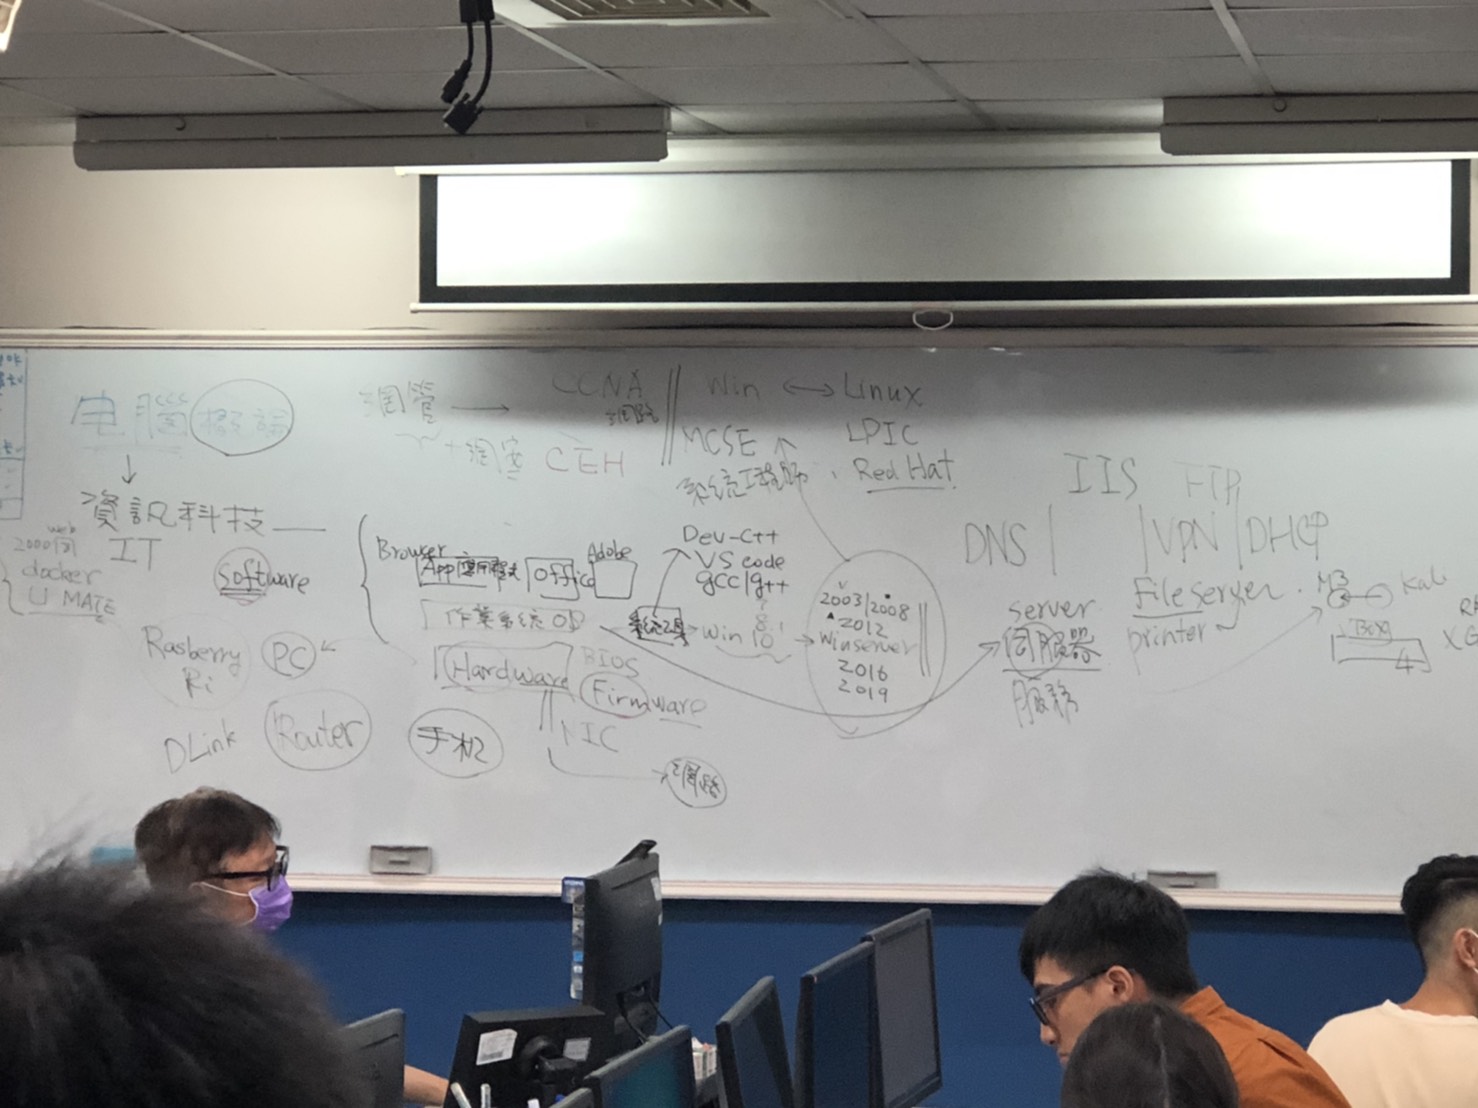 电腦概論
資訊科技
IT
web
2000個
docker
U MATE
software
Rasberry
Pi
PC
DLink
Router
手机
網管 → CCNA
網路
+ 網客 CEH
Win ↔ Linux
MCSE
LPIC
系統工程師
Red Hat
Browser
App 應用程式
Office
Adobe
作業系統 OS
Hardware
BIOS
Firmware
NIC
網路
系統工具
Dev-C++
VS code
gcc/g++
7
8.1
Win 10
2003/2008
2012
Winserver
2016
2019
IIS
FTP
DNS
VPN
DHCP
server
伺服器
服務
File server
printer
M3
Kali
Box
4